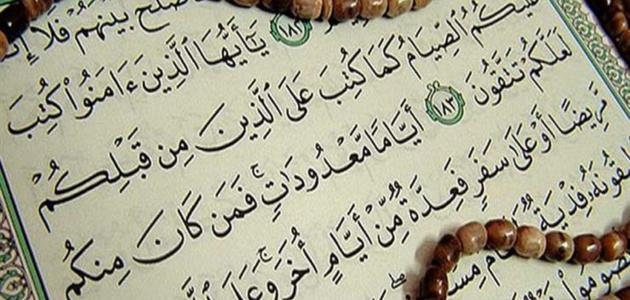 صْلَحَ بَيْنَهُمْ فَلَآ إِ
١٨٢ يَٰٓأَيُّهَا ٱلَّذِينَ ءَامَنُوا۟ كُتِبَ
لَيْكُمُ ٱلصِّيَامُ كَمَا كُتِبَ عَلَى ٱلَّذِينَ مِن قَبْلِكُمْ
لَعَلَّكُمْ تَتَّقُونَ ١٨٣ أَيَّامًا مَّعْدُودَٰتٍۚ فَمَن كَانَ مِنكُم
مَّرِيضًا أَوْ عَلَىٰ سَفَرٍ فَعِدَّةٌ مِّنْ أَيَّامٍ أُخَرَۚ وَعَلَى
يقُونَهُۥ فِدْيَةٌ